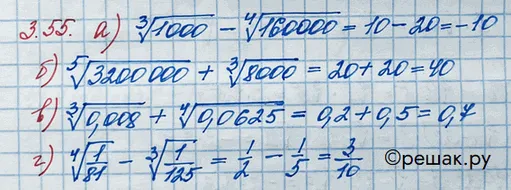 3.55. а) ∛1000 − ∜160000 = 10 − 20 = −10
б) ⁵√3200000 + ∛8000 = 20 + 20 = 40
в) ∛0,008 + ∜0,0625 = 0,2 + 0,5 = 0,7
г) ∜(1/81) − ∛(1/125) = 1/2 − 1/5 = 3/10
©решак.ру